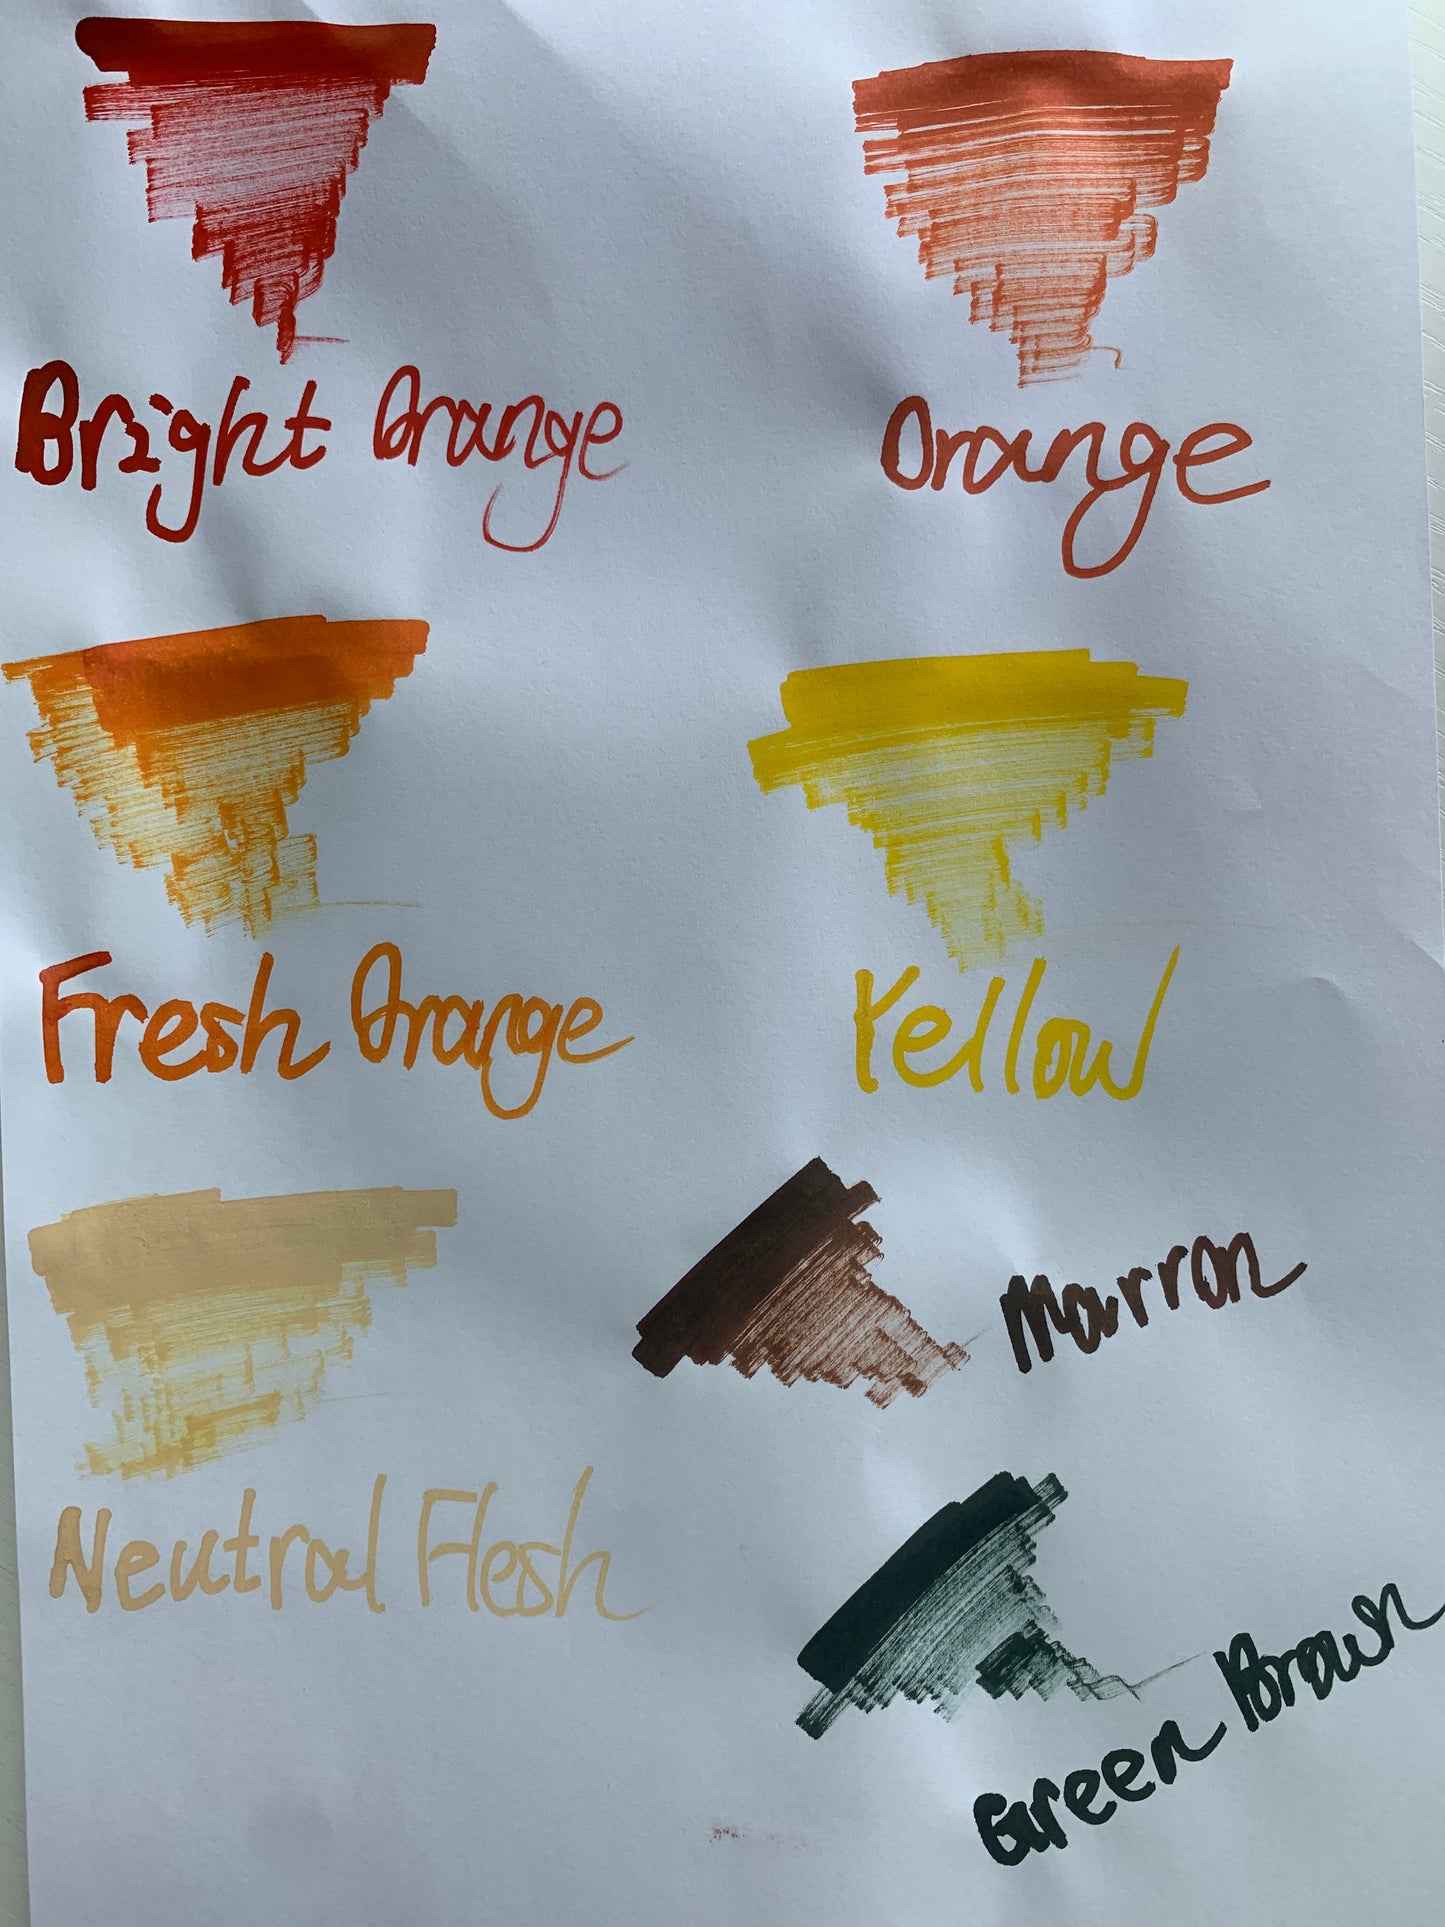 Bright Orange
Orange
Fresh Orange
Yellow
Marron
Neutral Flesh
Green Brown